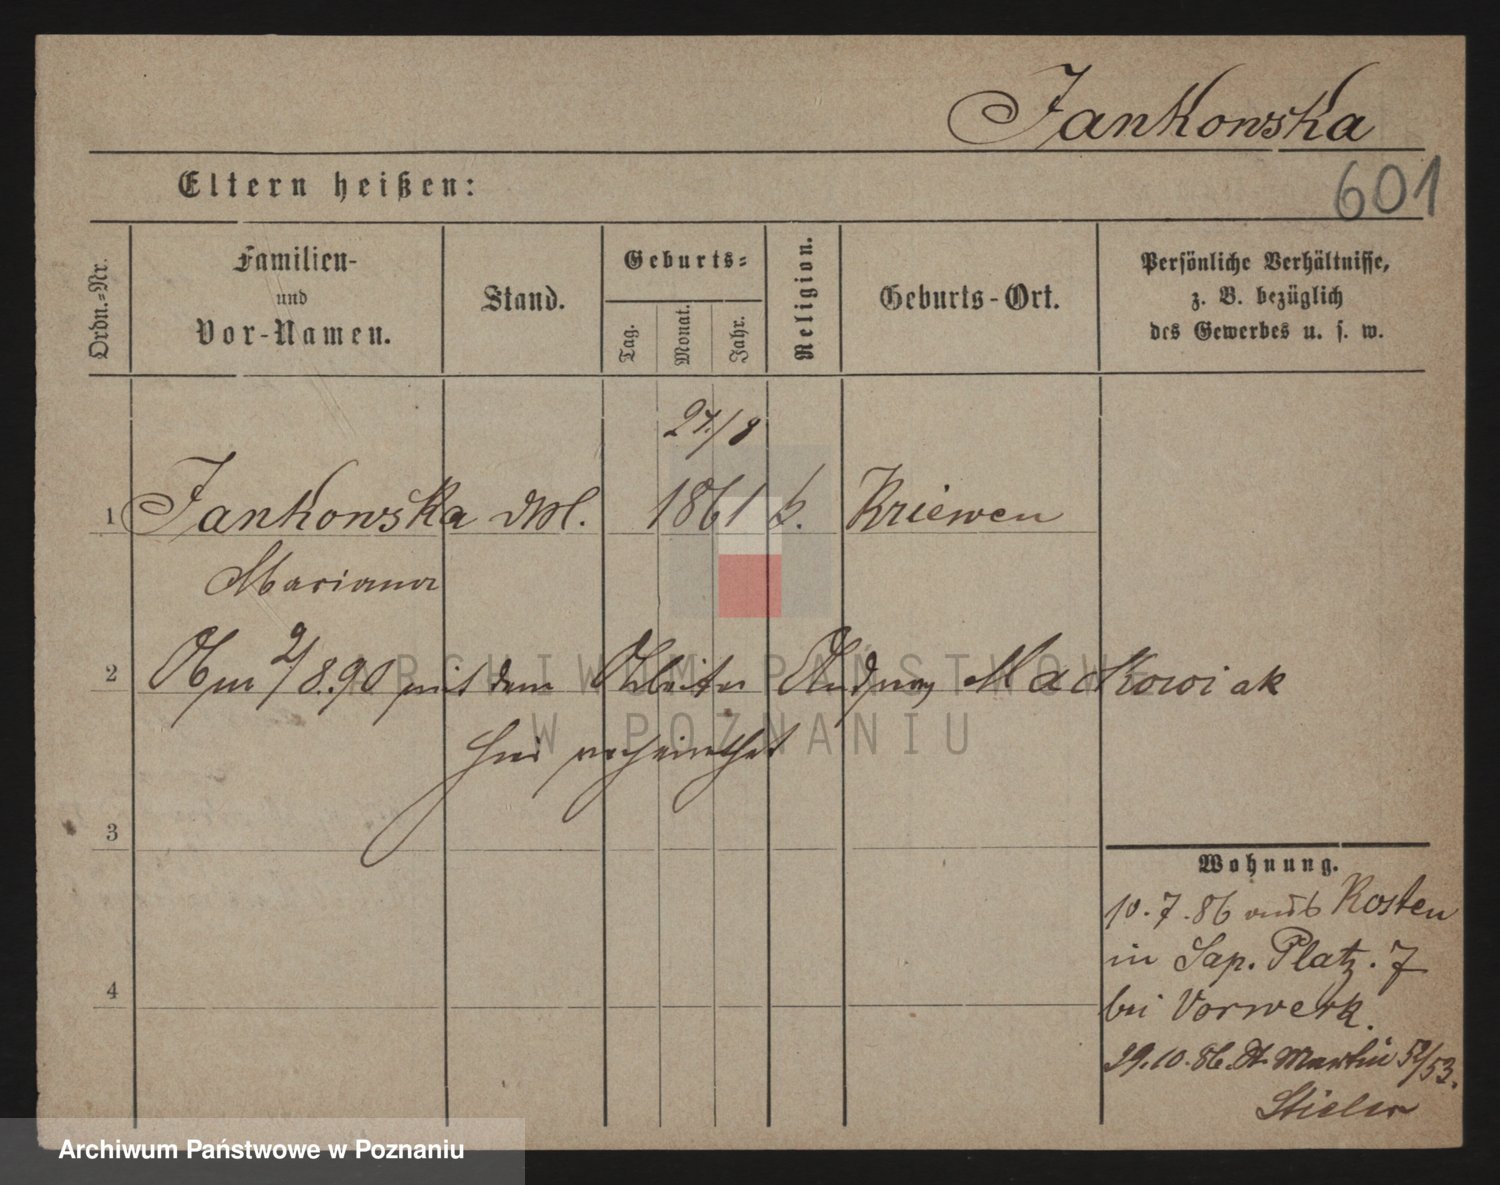 Jankowska
601
Eltern heißen:
Ordn.-Nr.
Familien-
und
Vor-Namen.
Stand.
Geburts-
Tag.
Monat.
Jahr.
Religion.
Geburts-Ort.
Persönliche Verhältnisse,
z. B. bezüglich
des Gewerbes u. s. w.
27./8
1 Jankowska 1861 k. Kriewen
Mariana
2 Am 2/8.90 mit dem Arbeiter Andreas Mackowiak
hier verheirathet
3
4
Wohnung.
10.7.86 aus Kosten
in Sap. Platz. 7
bei Vorwerk.
29.10.86. St. Martin 52/53.
Stieler
ARCHIWUM PAŃSTWOWE
W POZNANIU
Archiwum Państwowe w Poznaniu